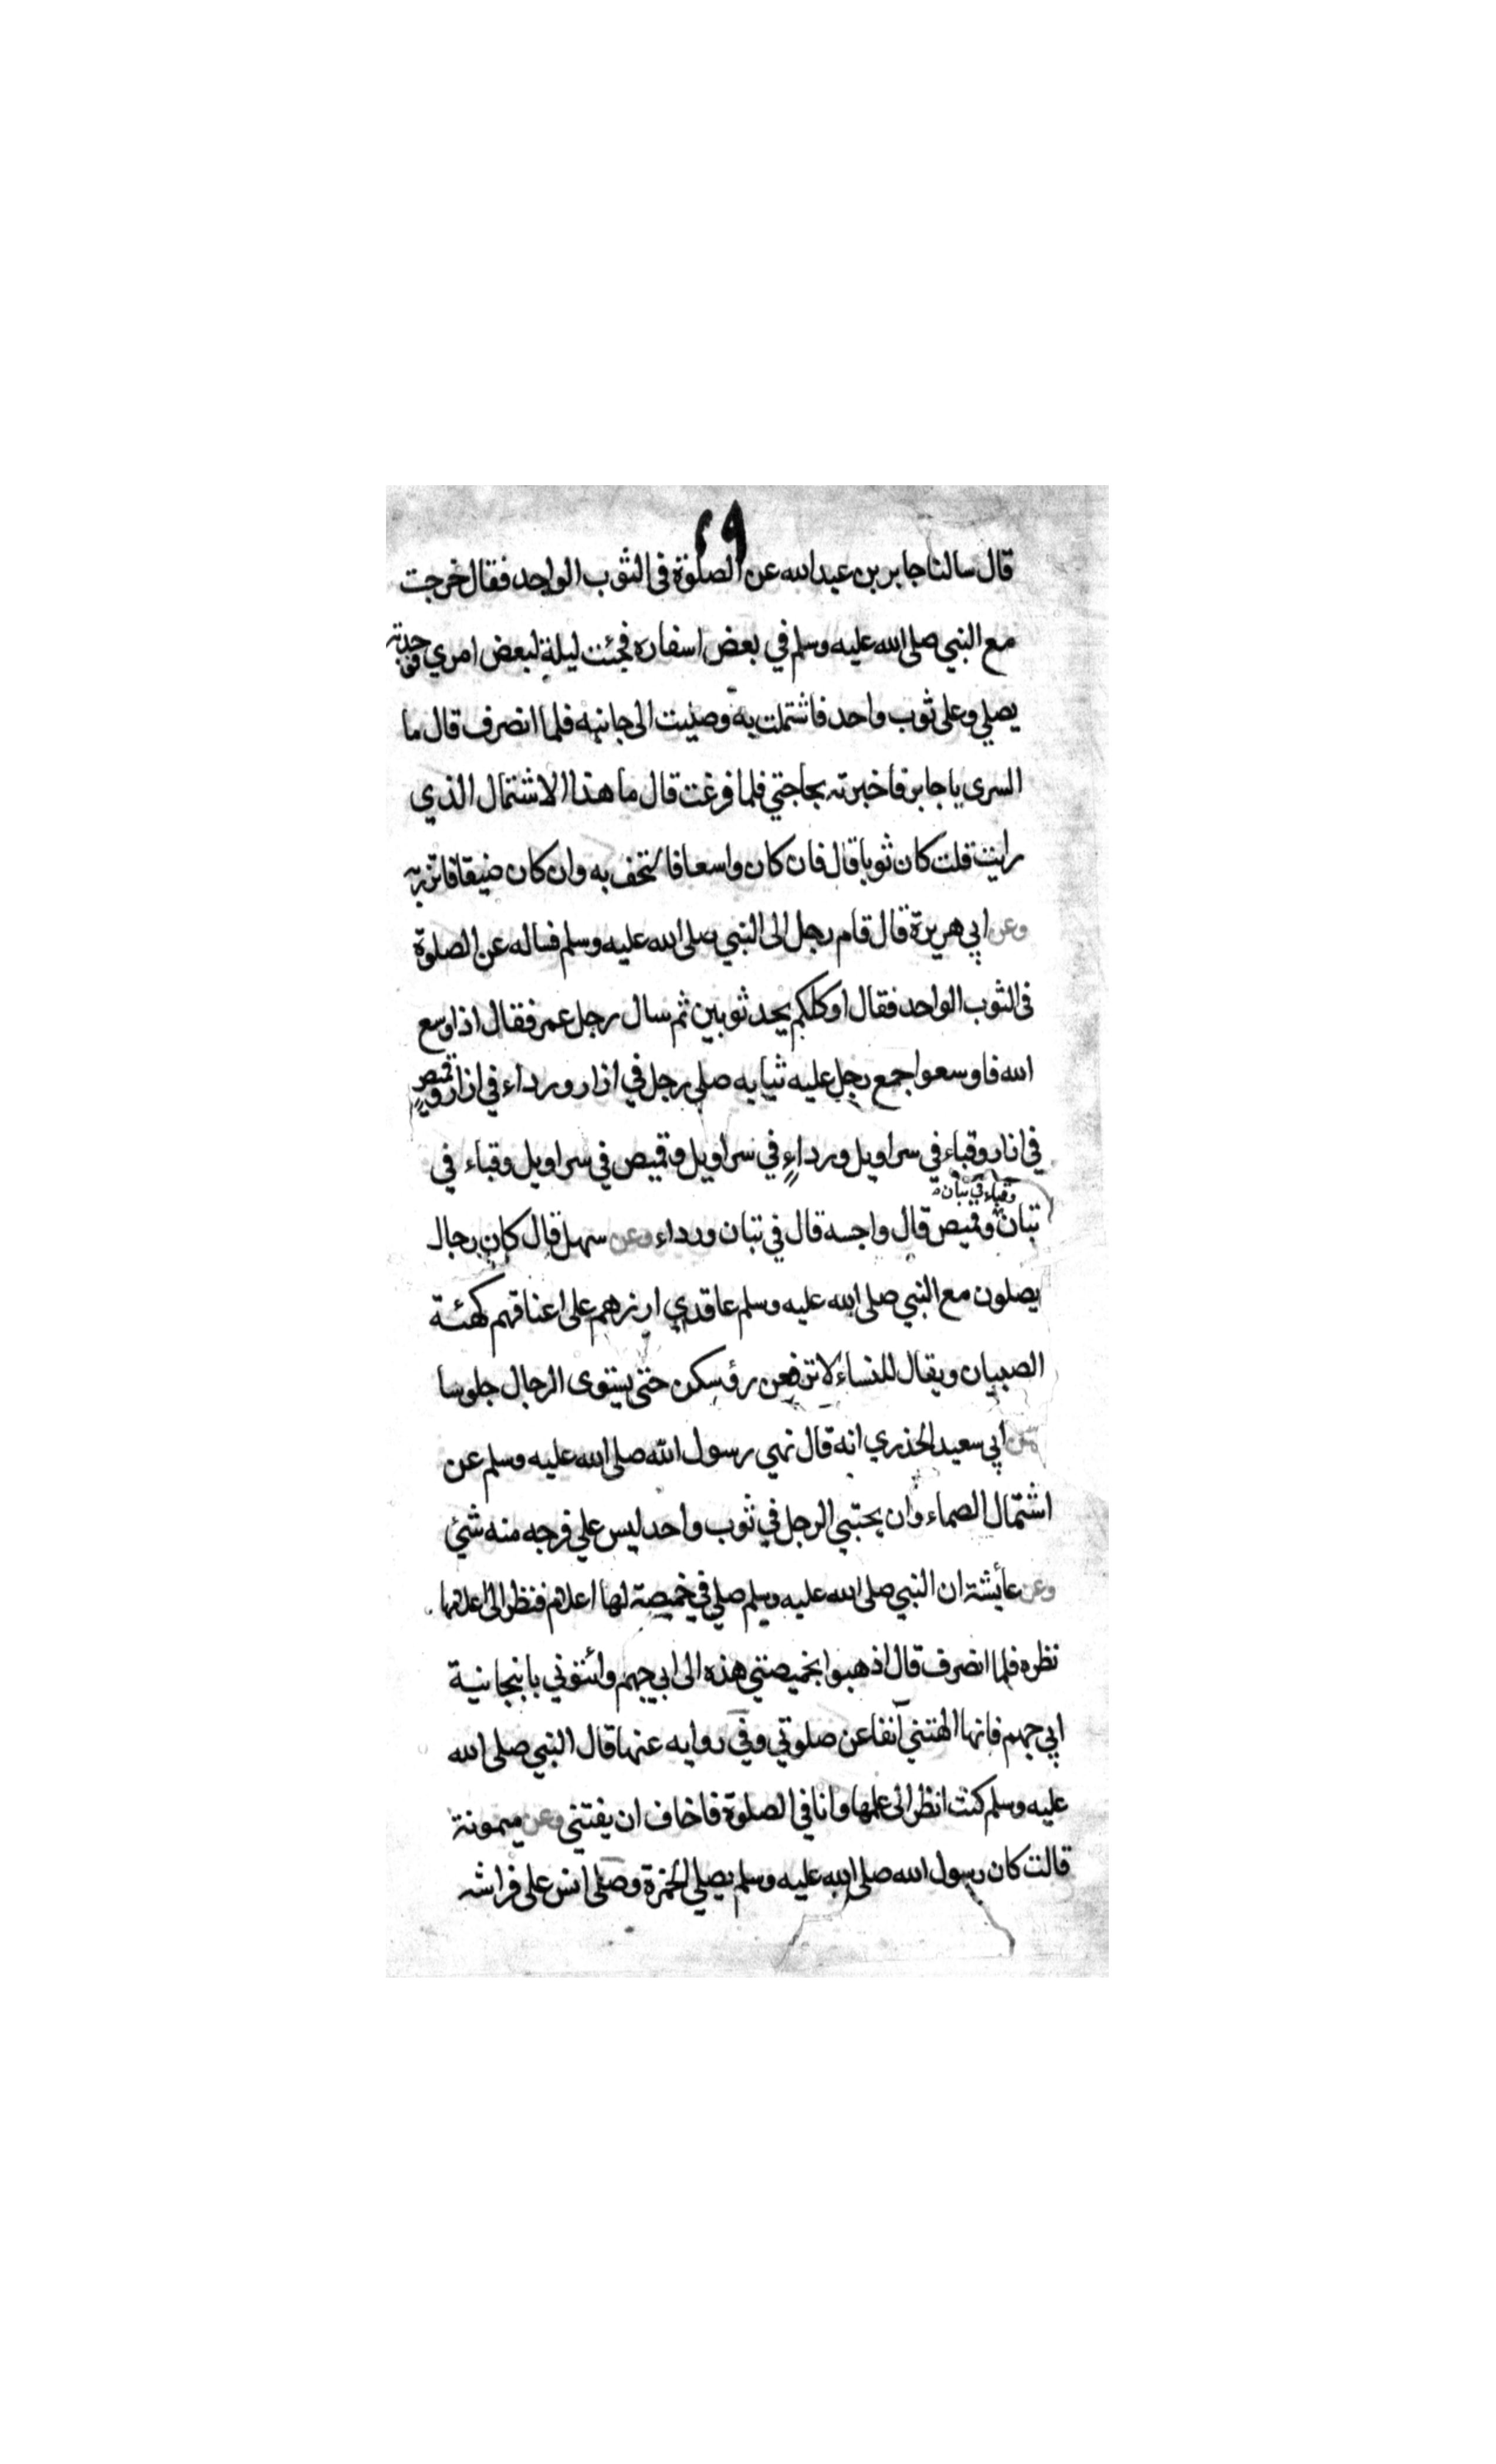 ٢٩
قال سالنا جابر بن عبد الله عن الصلوة في الثوب الواحد فقال خرجت
مع النبي صلى الله عليه وسلم في بعض اسفاره فجئت ليلة لبعض امري فوجدته
يصلي وعلى ثوب واحد فاشتملت به وصليت الى جانبه فلما انصرف قال ما
السرى يا جابر فاخبرته بحاجتي فلما فرغت قال ما هذا الاشتمال الذي
رايت قلت كان ثوبا قال فان كان واسعا فالتحف به وان كان ضيقا فاتزر به
وعن ابي هريرة قال قام رجل الى النبي صلى الله عليه وسلم فساله عن الصلوة
في الثوب الواحد فقال اوكلكم يجد ثوبين ثم سال رجل عمر فقال اذا وسع
الله فاوسعوا جمع رجل عليه ثيابه صلى رجل في ازار ورداء في ازار وقميص
في ازار وقباء في سراويل ورداء في سراويل وقميص في سراويل وقباء في
وقباء في تبان
تبان وقميص قال واحسه قال في تبان ورداء وعن سهل قال كان رجال
يصلون مع النبي صلى الله عليه وسلم عاقدي ازرهم على اعناقهم كهئة
الصبيان ويقال للنساء لا ترفعن رؤسكن حتى يستوى الرجال جلوسا
عن ابي سعيد الخذري انه قال نهي رسول الله صلى الله عليه وسلم عن
اشتمال الصماء وان يحتبي الرجل في ثوب واحد ليس علي فرجه منه شئ
وعن عائشة ان النبي صلى الله عليه وسلم صلي في خميصة لها اعلام فنظر الى اعلامها
نظره فلما انصرف قال اذهبوا بخميصتي هذه الى ابي جهم وائتوني بانبجانية
ابي جهم فانها الهتني آنفا عن صلوتي وفي روايه عنها قال النبي صلى الله
عليه وسلم كنت انظر الى علمها وانا في الصلوة فاخاف ان يفتني وعن ميمونة
قالت كان رسول الله صلى الله عليه وسلم يصلي الخمرة وصلى انس على فراشه